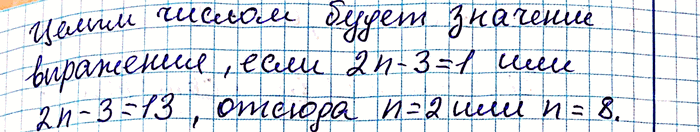 Целым числом будет значение
выражения, если 2n-3=1 или
2n-3=13, отсюда n=2 или n=8.